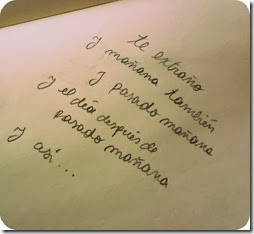 te extraño
y mañana también
y pasado mañana
y el día después de
pasado mañana
y así...